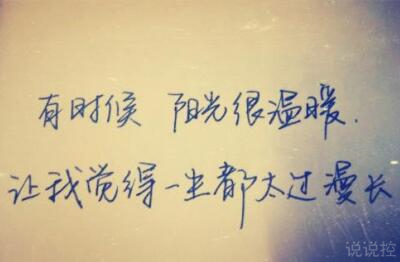 有时候 阳光很温暖.
让我觉得一生都太过漫长
说说控